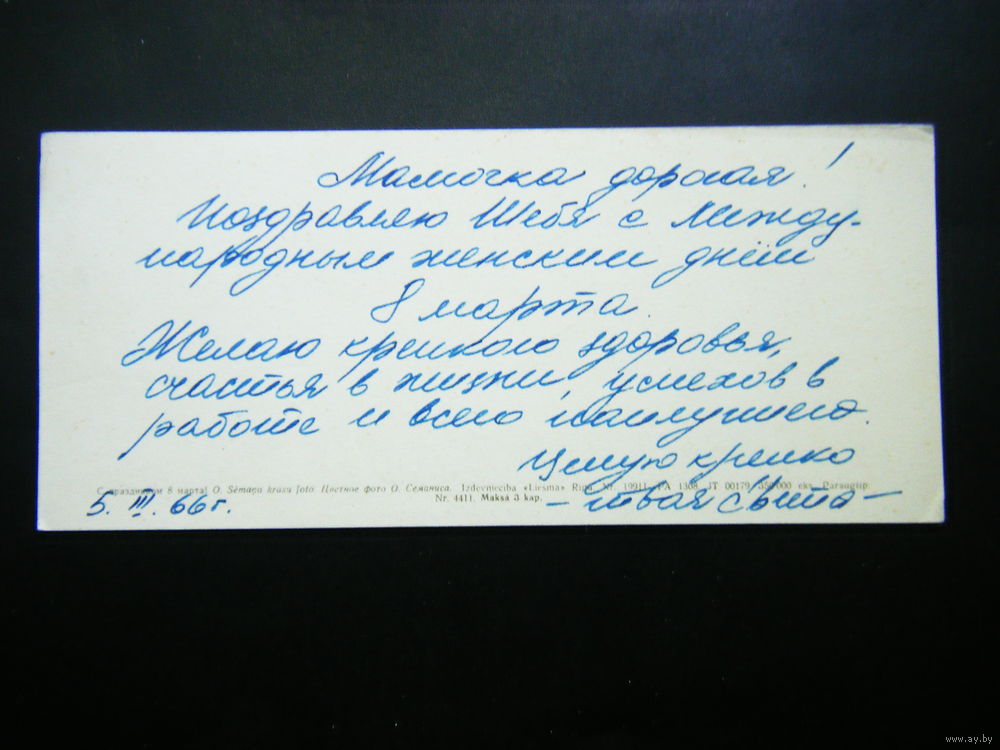 Мамочка дорогая!
Поздравляю Тебя с Между-
народным женским днём
8 марта.
Желаю крепкого здоровья,
счастья в жизни, успехов в
работе и всего наилучшего.
Целую крепко
С праздником 8 марта! O. Sēmaņa krāsu foto. Цветное фото О. Семаниса. Izdevniecība «Liesma» Rīgā, Nr. 19911, PA 1308, JT 00179, 350 000 eks. Paraugtip.
Nr. 4411. Maksā 3 kap.
5. III. 66 г.
– твоя Света –
www.ay.by